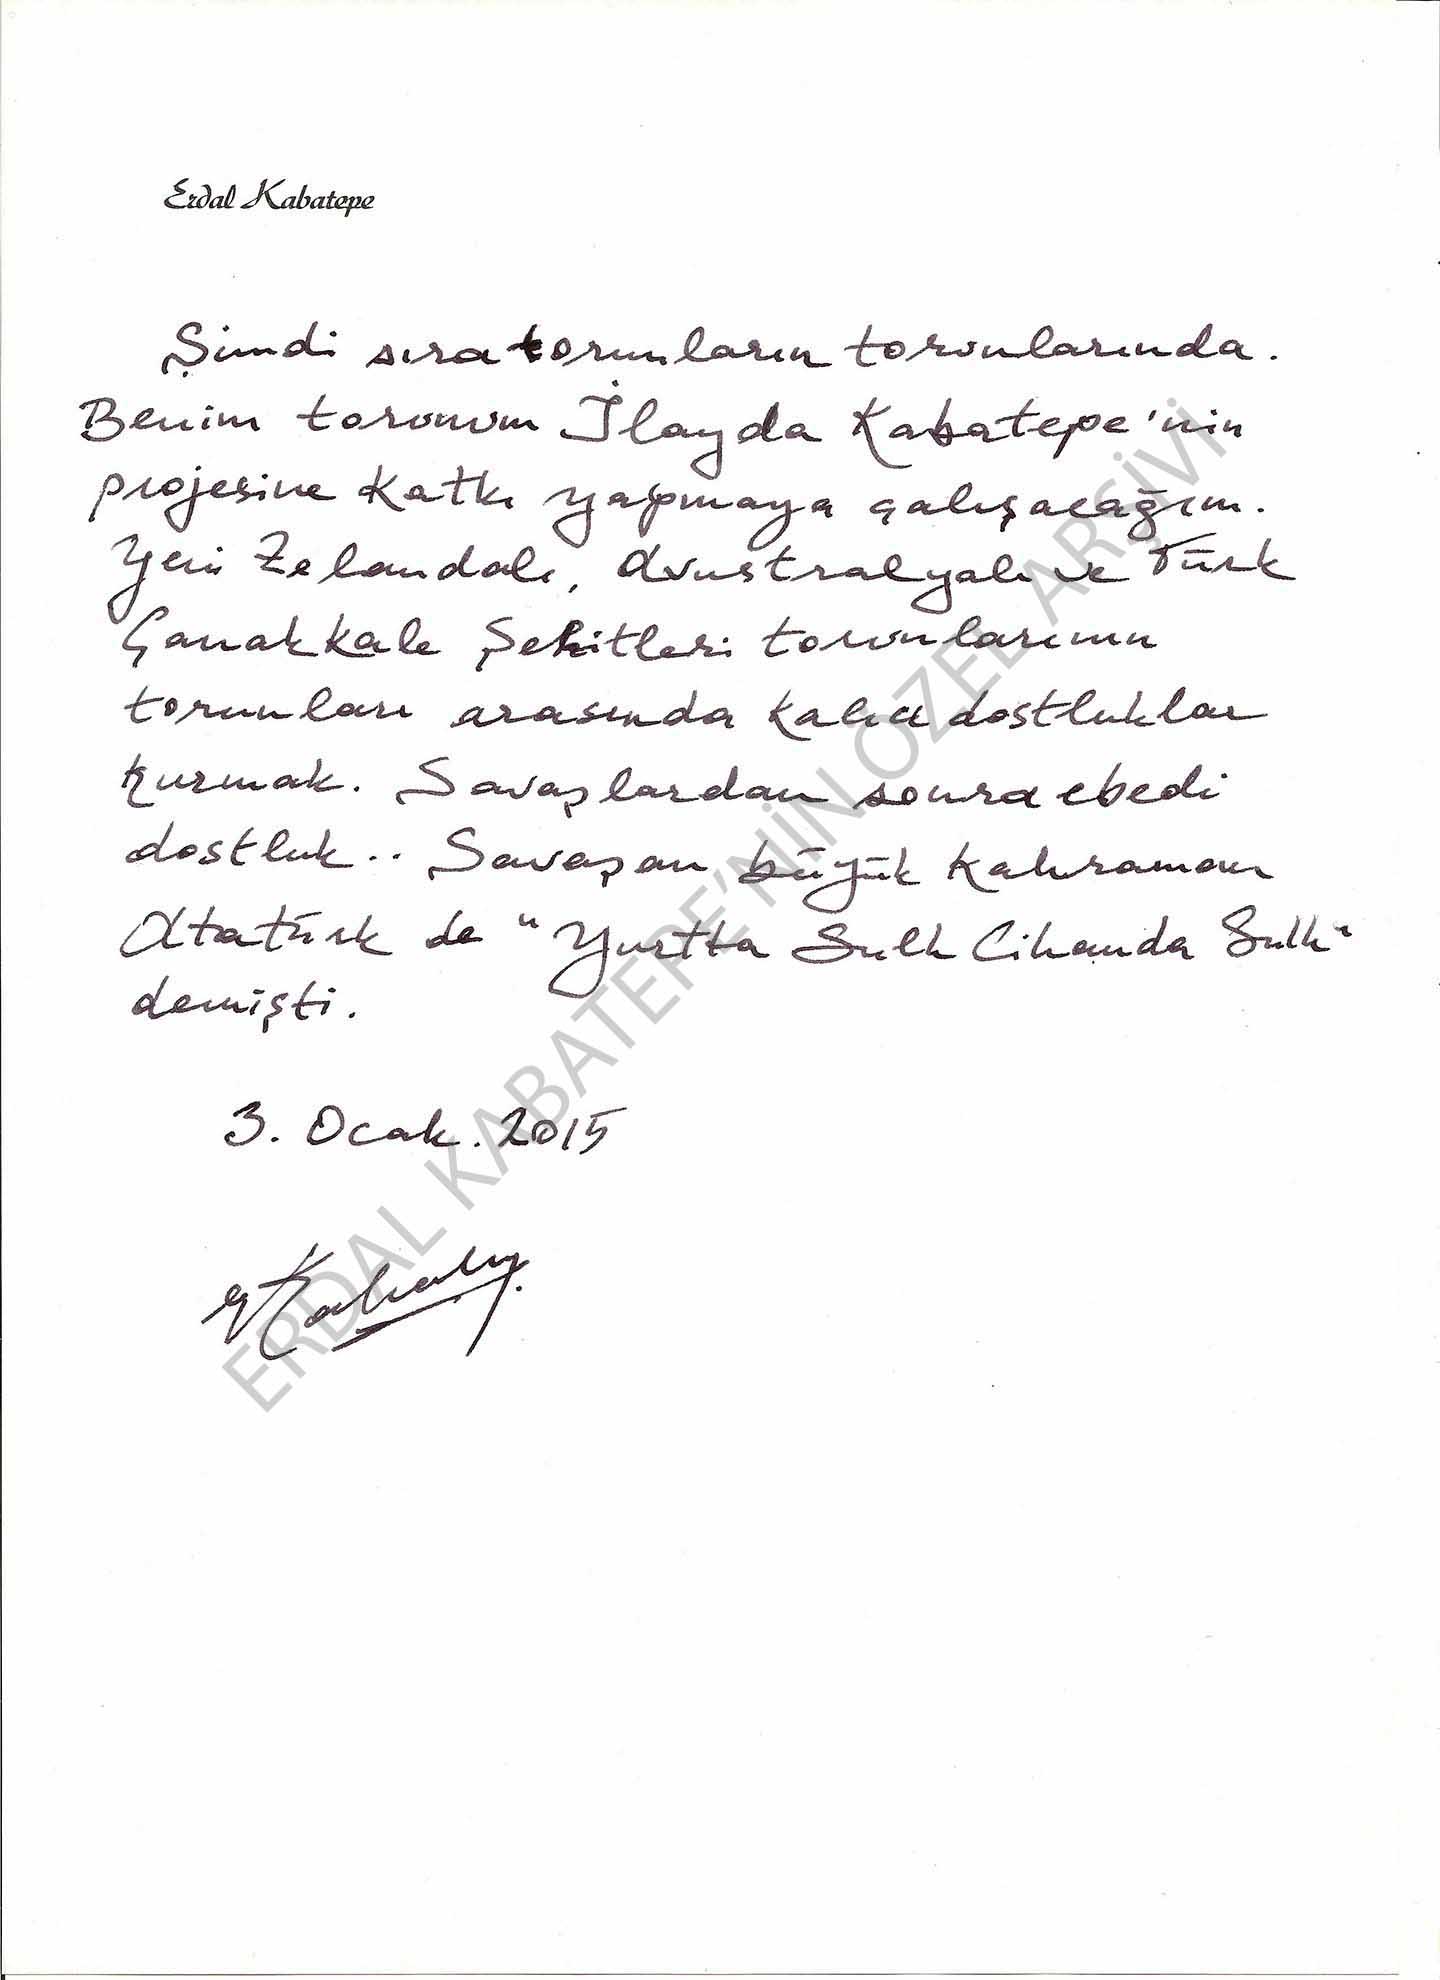 Erdal Kabatepe
Şimdi sıra torunların torunlarında.
Benim torunum İlayda Kabatepe'nin
projesine katkı yapmaya çalışacağım.
Yeni Zelandalı, Avustralyalı ve Türk
Çanakkale Şehitleri torunlarının
torunları arasında kalıcı dostluklar
kurmak. Savaşlardan sonra ebedi
dostluk.. Savaşan büyük kahraman
Atatürk de "Yurtta Sulh Cihanda Sulh"
demişti.
3. Ocak. 2015
ERDAL KABATEPE'NİN ÖZEL ARŞİVİ